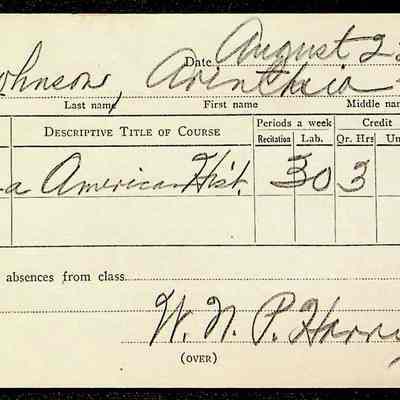 Date August 2
Johnson,
Last name First name Middle nam
DESCRIPTIVE TITLE OF COURSE Periods a week Credit
Recitation Lab. Qr. Hrs Un
a American Hist. 3 0 3
absences from class
W. N. P. Harri
(OVER)